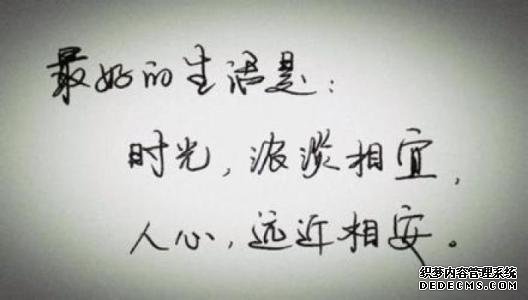 最好的生活是：
时光，浓淡相宜，
人心，远近相安。
织梦内容管理系统
DEDECMS.COM